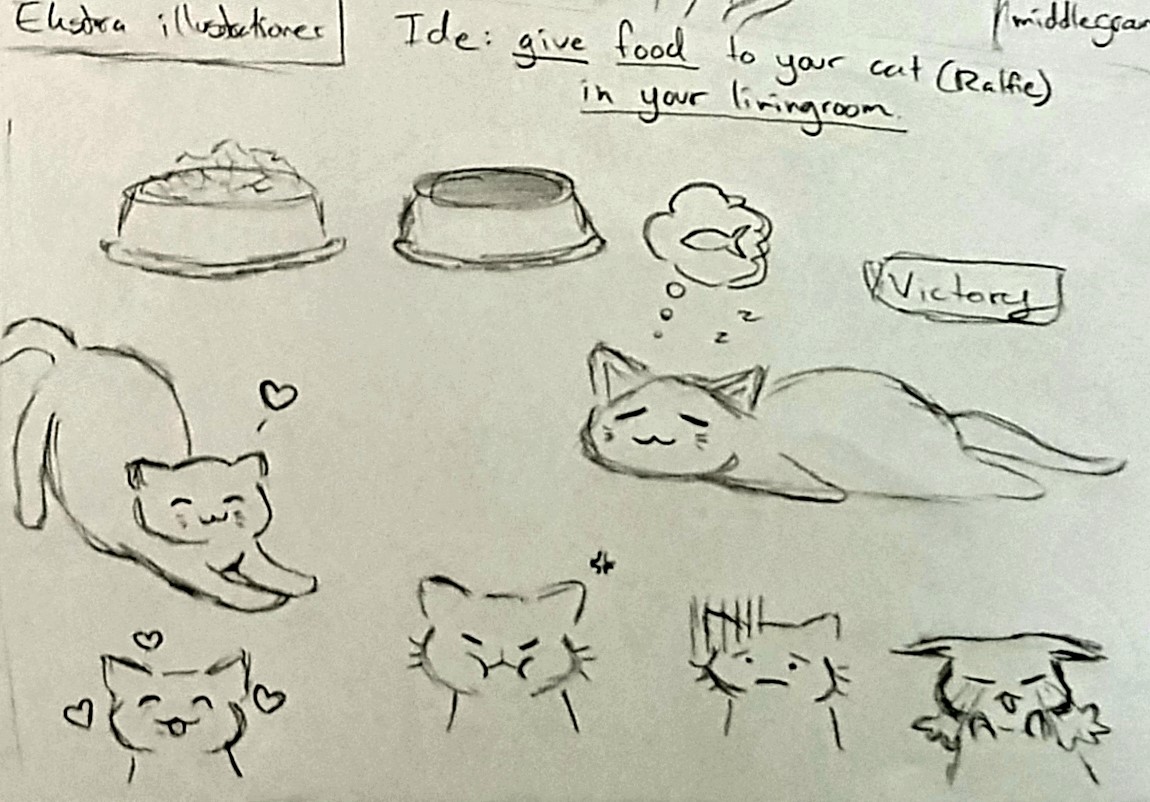 Ekstra illustationer
Ide: give food to your cat (Ralfie)
in your livingroom.
z
z
Victory